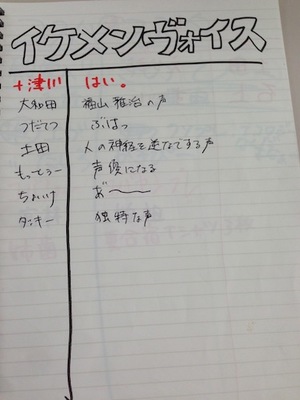 イケメンヴォイス
十津川 はい。
大和田 福山雅治の声
つだてつ ぶはっ
土田 人の神経を逆なでする声
もっとぅー 声優になる
ちょいけ あ゛〜
タッキー 独特な声